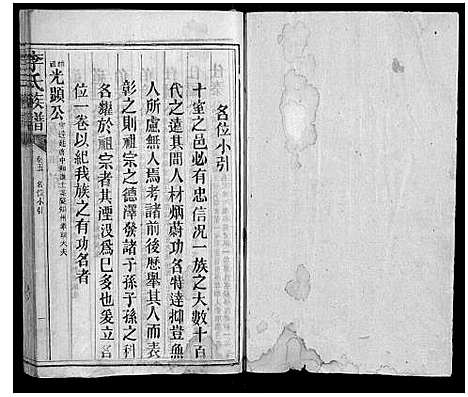 名位小引
十室之邑必有忠信况一族之大數十百
代之遠其間人材炳蔚功名特達抑豈無
人所慮無人焉考諸前後歷舉其人而表
彰之則祖宗之德澤發諸于孫子孫之科
名耀於祖宗者其湮没為已多也爰立名
位一卷以紀我族之有功名者
光顯公
李氏族譜
卷五
名位小引